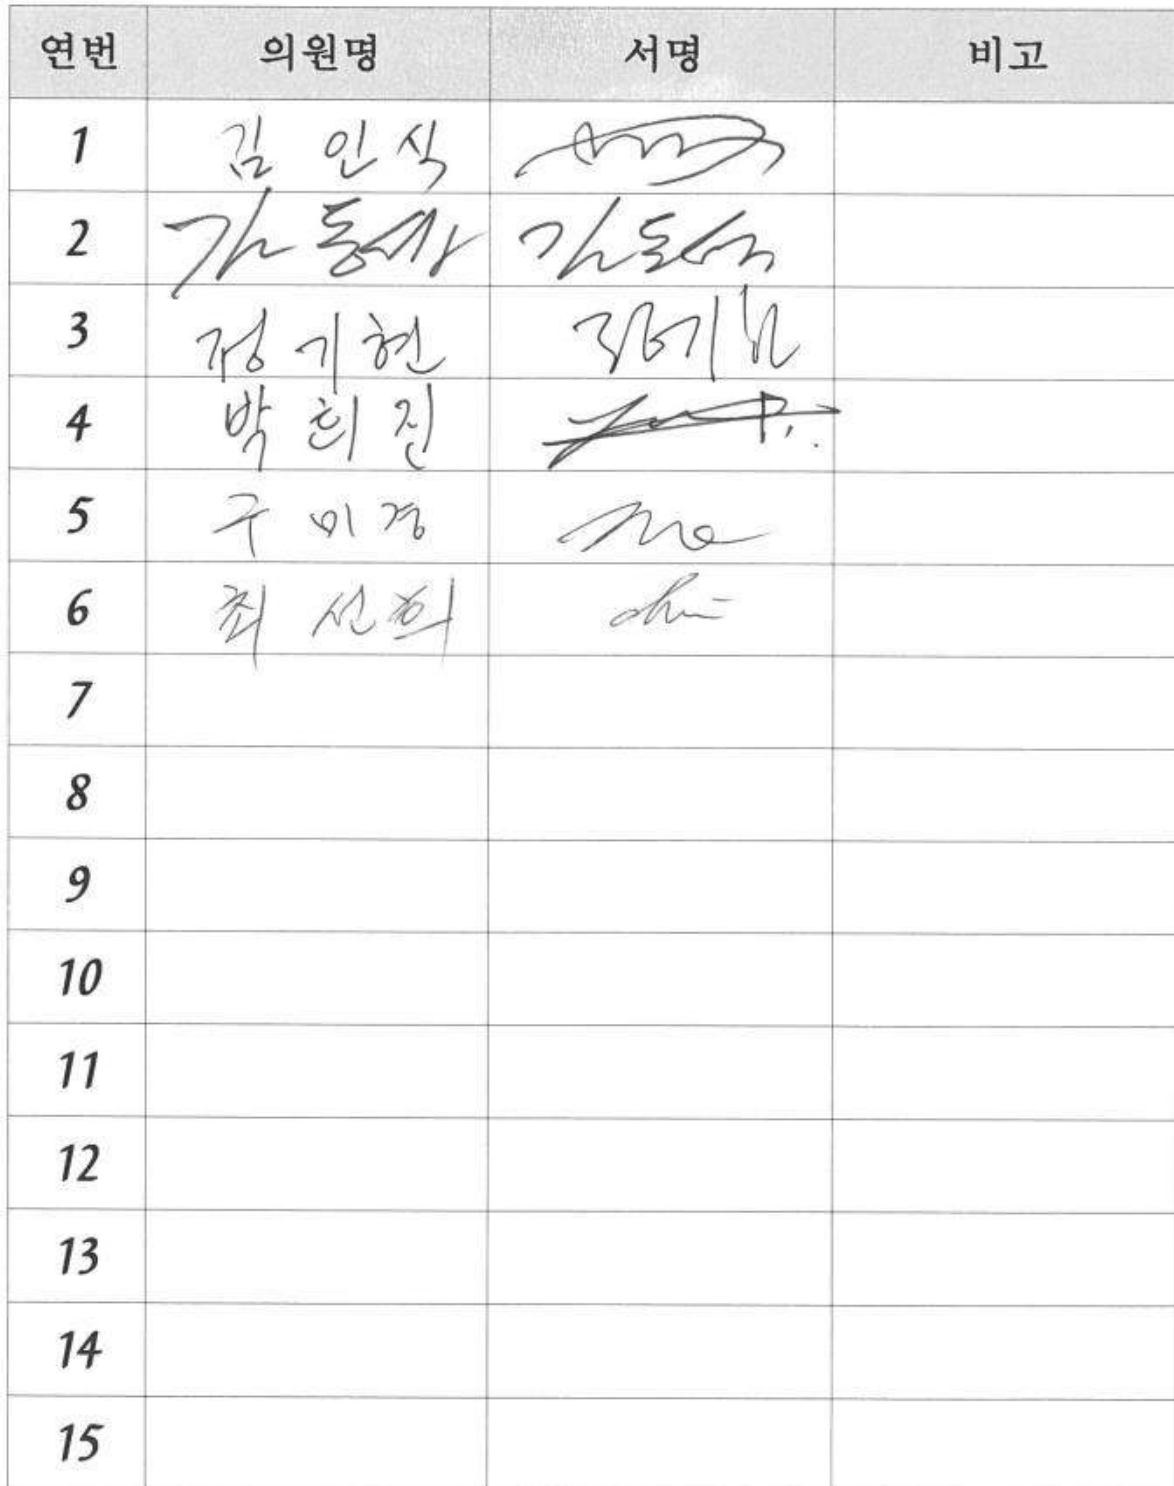 연번 의원명 서명 비고
1 김 인 식
2 김동섭 김동섭
3 정 기 현 정기현
4 박 희 진
5 구 미 경
6 최 선 희
7
8
9
10
11
12
13
14
15